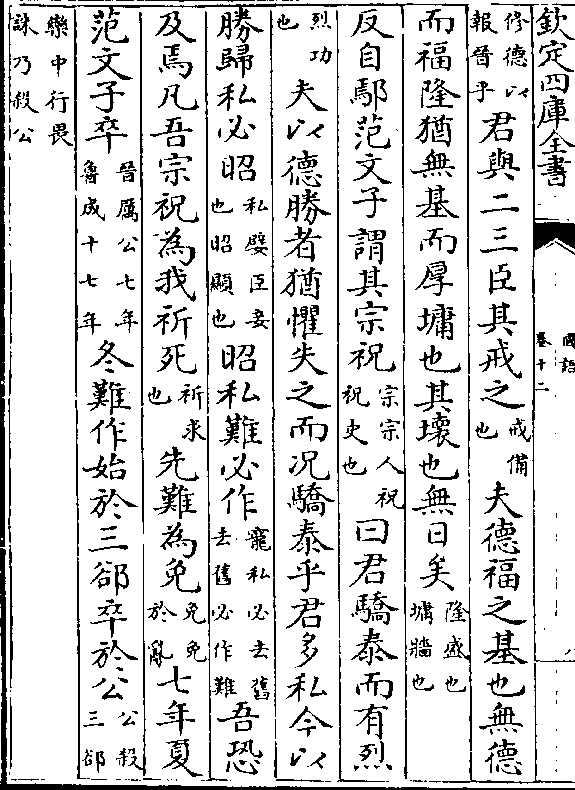 欽定四庫全書
國語
卷十二
修德以報晉乎君與二三臣其戒之戒備也夫德福之基也無德
而福隆猶無基而厚墉也其壞也無日矣隆盛也墉牆也
反自鄢范文子謂其宗祝宗宗人祝祝史也曰君驕泰而有烈
烈功也夫以德勝者猶懼失之而况驕泰乎君多私今以
勝歸私必昭私嬖臣妾也昭顯也昭私難必作寵私必去舊去舊必作難吾恐
及焉凡吾宗祝為我祈死祈求也先難為免免免於亂七年夏
范文子卒晉厲公七年魯成十七年冬難作始於三郤卒於公公殺三郤
欒中行畏誅乃殺公